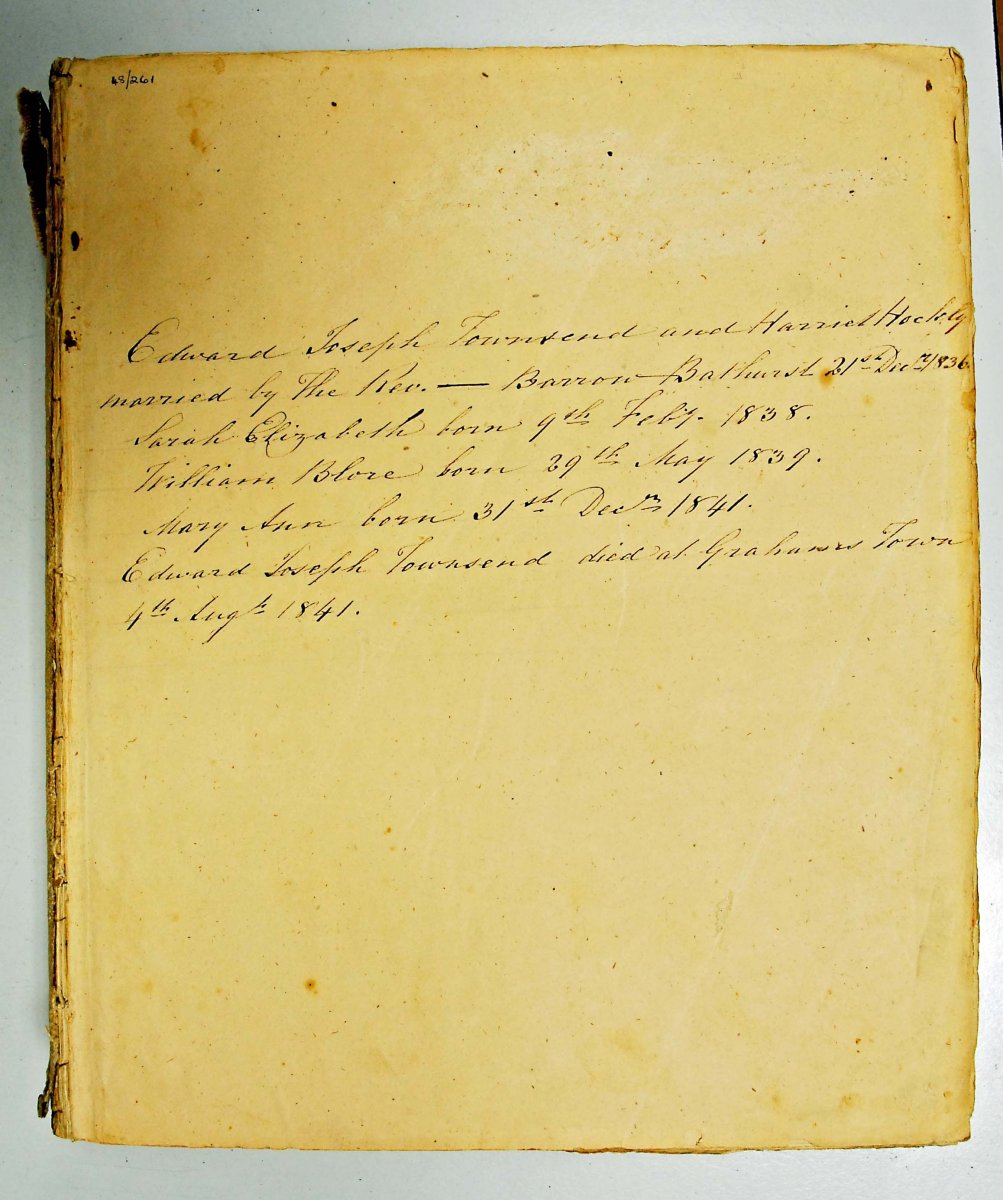 48/261
Edward Joseph Townsend and Harriet Hockly
married by The Rev. — Barrow Bathurst 21st Decr 1836
Sarah Elizabeth born 9th Feby. 1838.
William Blore born 29th May 1839.
Mary Ann born 31st Decr 1841.
Edward Joseph Townsend died at Grahams Town
4th Augt 1841.